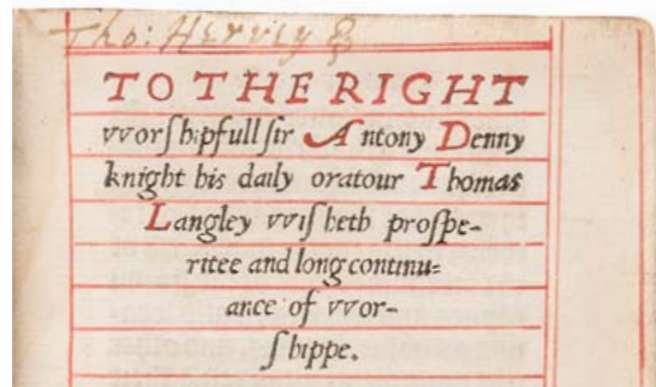 Tho: Hervey &
TO THE RIGHT
vvorſhipfull ſir Antony Denny
knight his daily oratour Thomas
Langley vviſheth proſpe-
ritee and long continu=
ance of vvor-
ſhippe.